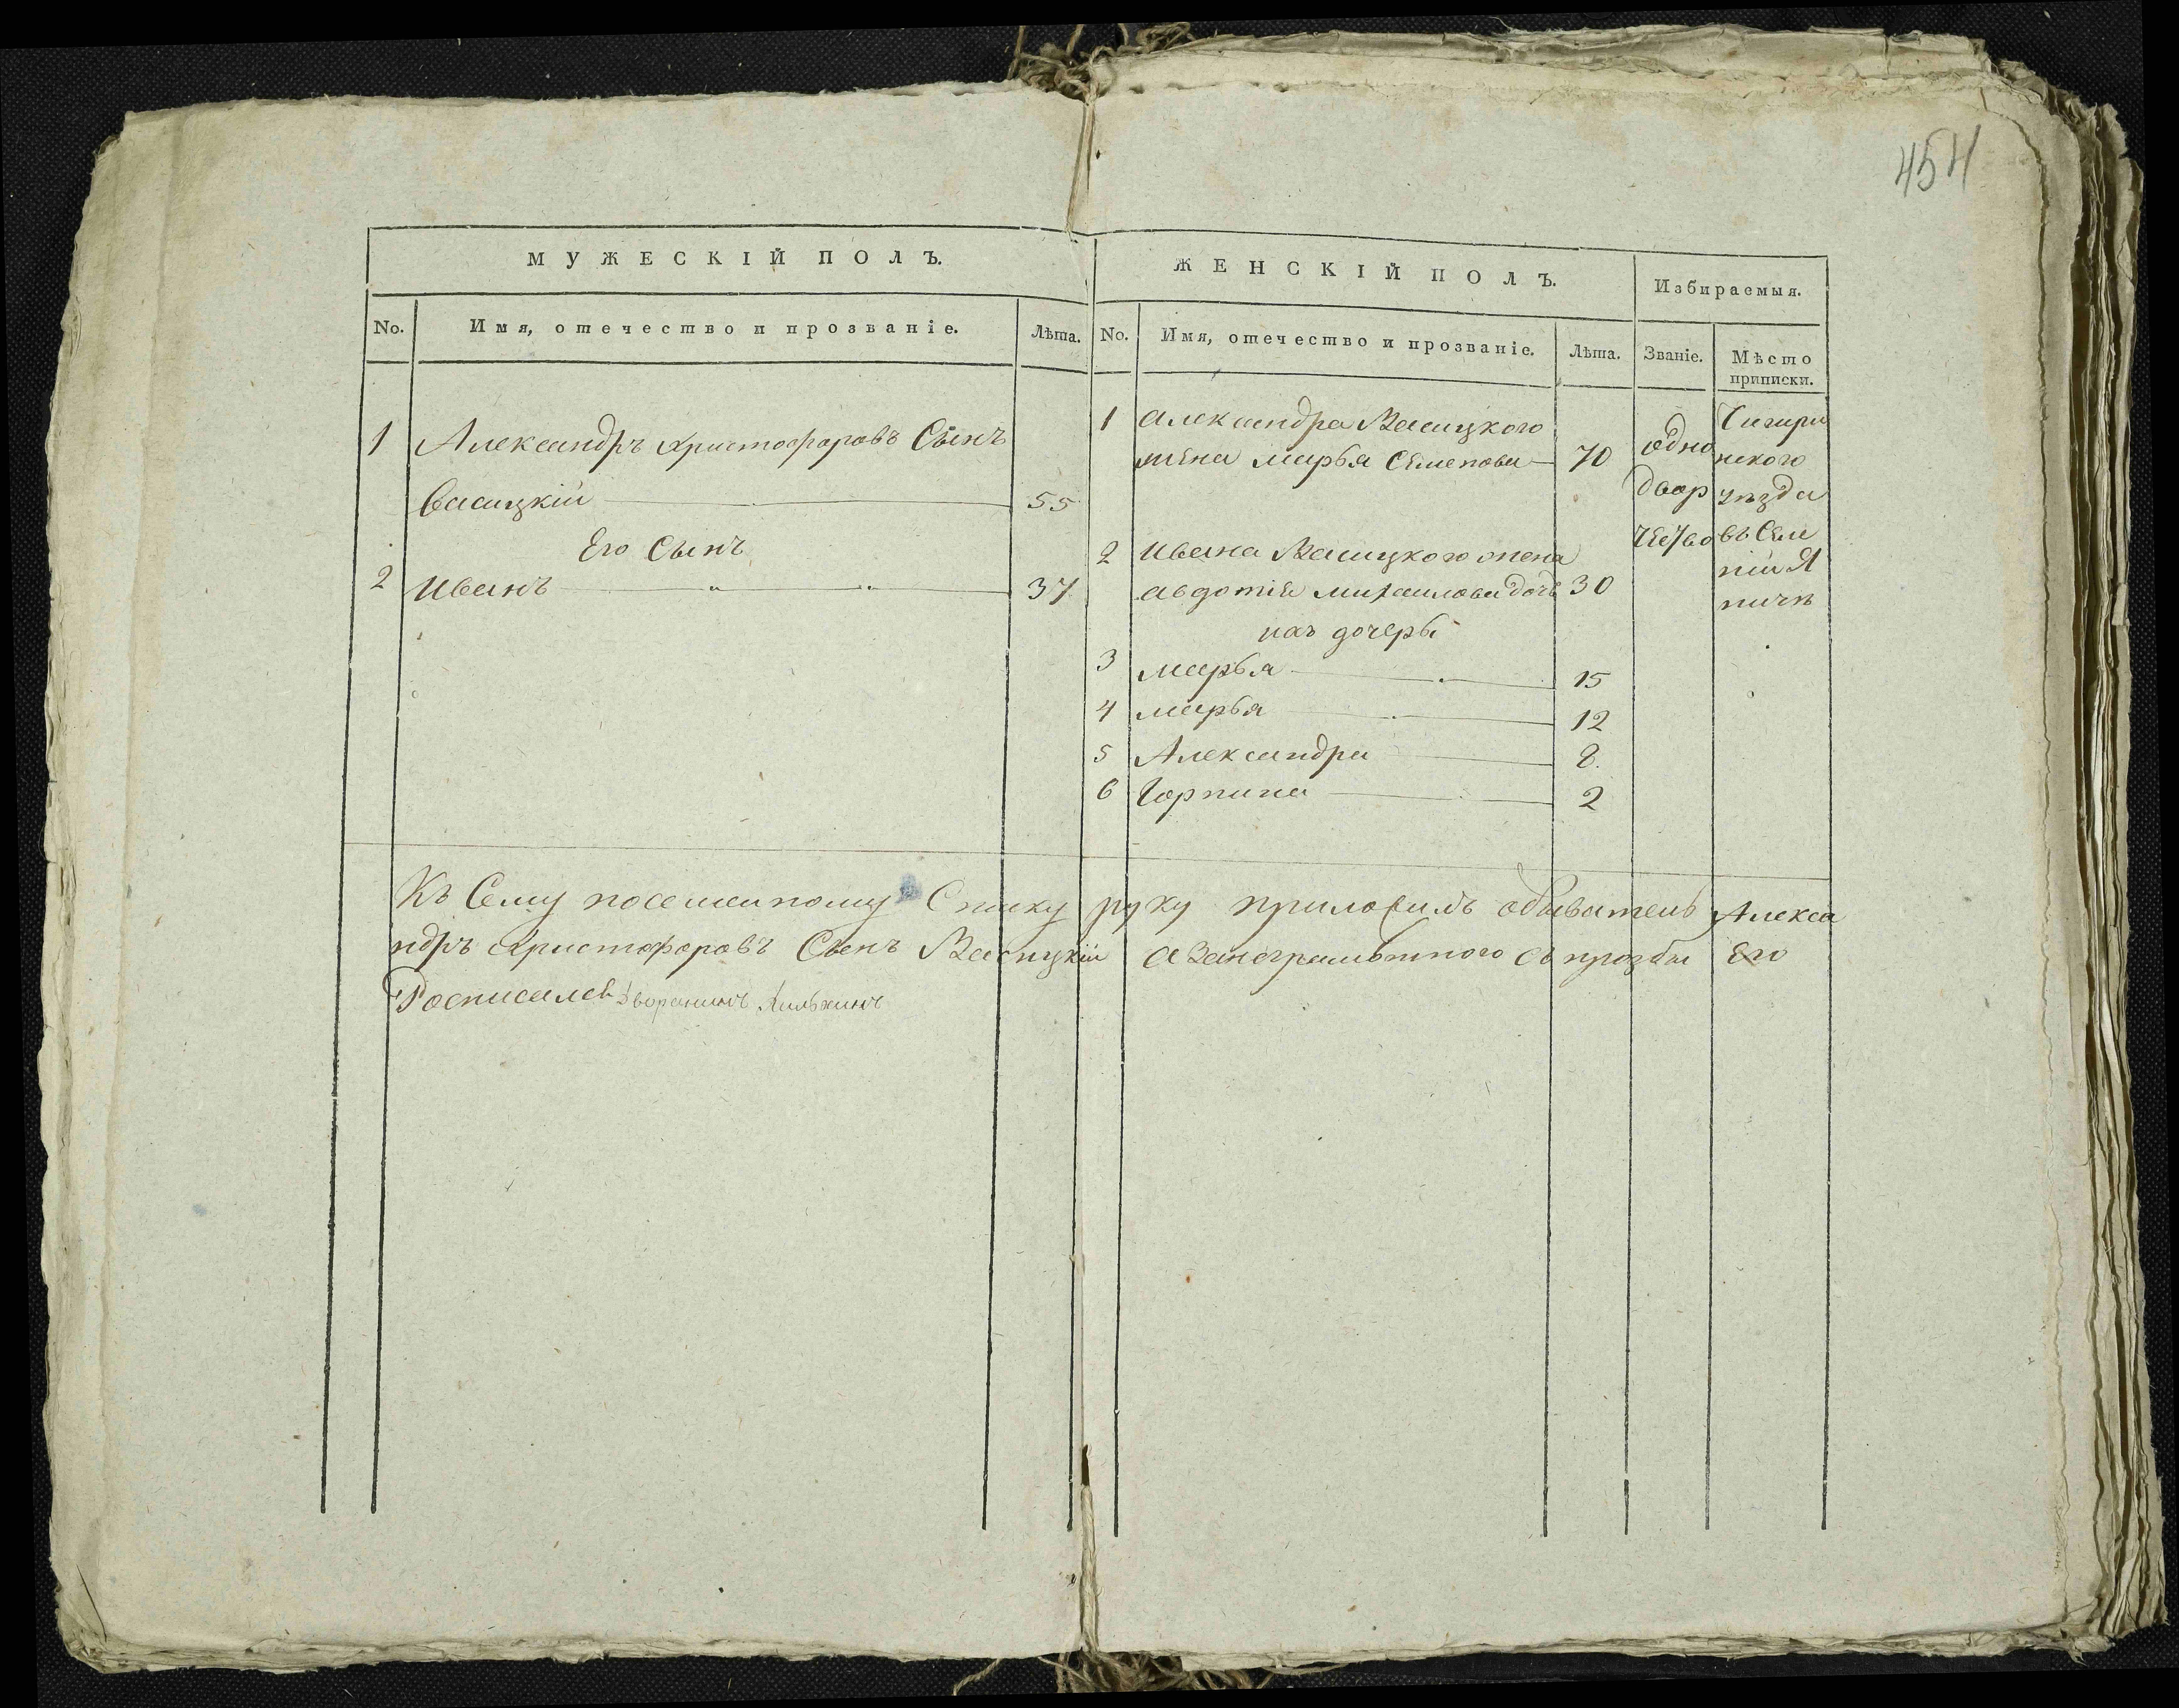 454
МУЖЕСКІЙ ПОЛЪ.
No. Имя, отечество и прозваніе. Лѣта.
1 Александръ Христофоровъ Сынъ
Васицкій 55
Его Сынъ
2 Иванъ 37
ЖЕНСКІЙ ПОЛЪ.
Избираемыя.
No. Имя, отечество и прозваніе. Лѣта. Званіе. Мѣсто
приписки.
1 Александра Васицкого
жена марья Семенова 70
2 Ивана Васицкого жена
авдотія михаилова дочь 30
ихъ дочеры
3 марья 15
4 марья 12
5 Александра 8.
6 Горпина 2
одно
двор
Чигири
нского
уѣзда
въ Селе
ніи Я
ничѣ
Къ Сему посемейному Списку руку приложилъ обыватель Алекса
ндръ Христофоровъ Сынъ Васицкій а за неграмотного съ прозбы Его
Росписался дворянинъ